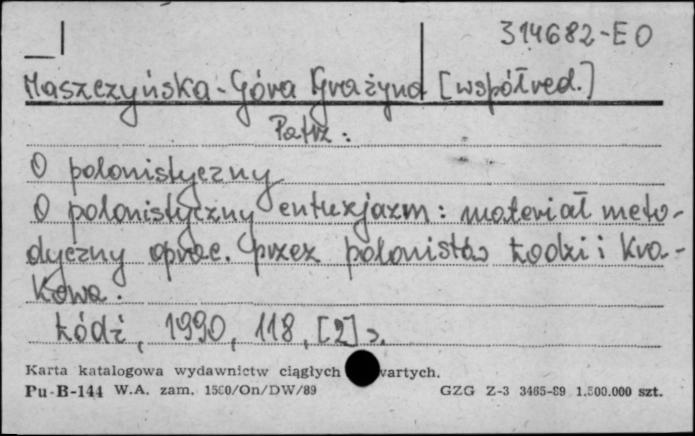 314682-E O
Maszczyńska-Góra Grażyna [współred.]
Patrz:
O polonistyczny
O polonistyczny entuzjazm: materiał meto-
dyczny oprac. przez polonistów Łodzi i Kra-
kowa.
Łódź, 1990, 118, [2] s.
Karta katalogowa wydawnictw ciągłych wartych.
Pu-B-144 W.A. zam. 1500/On/DW/89 GZG Z-3 3465-89 1.500.000 szt.